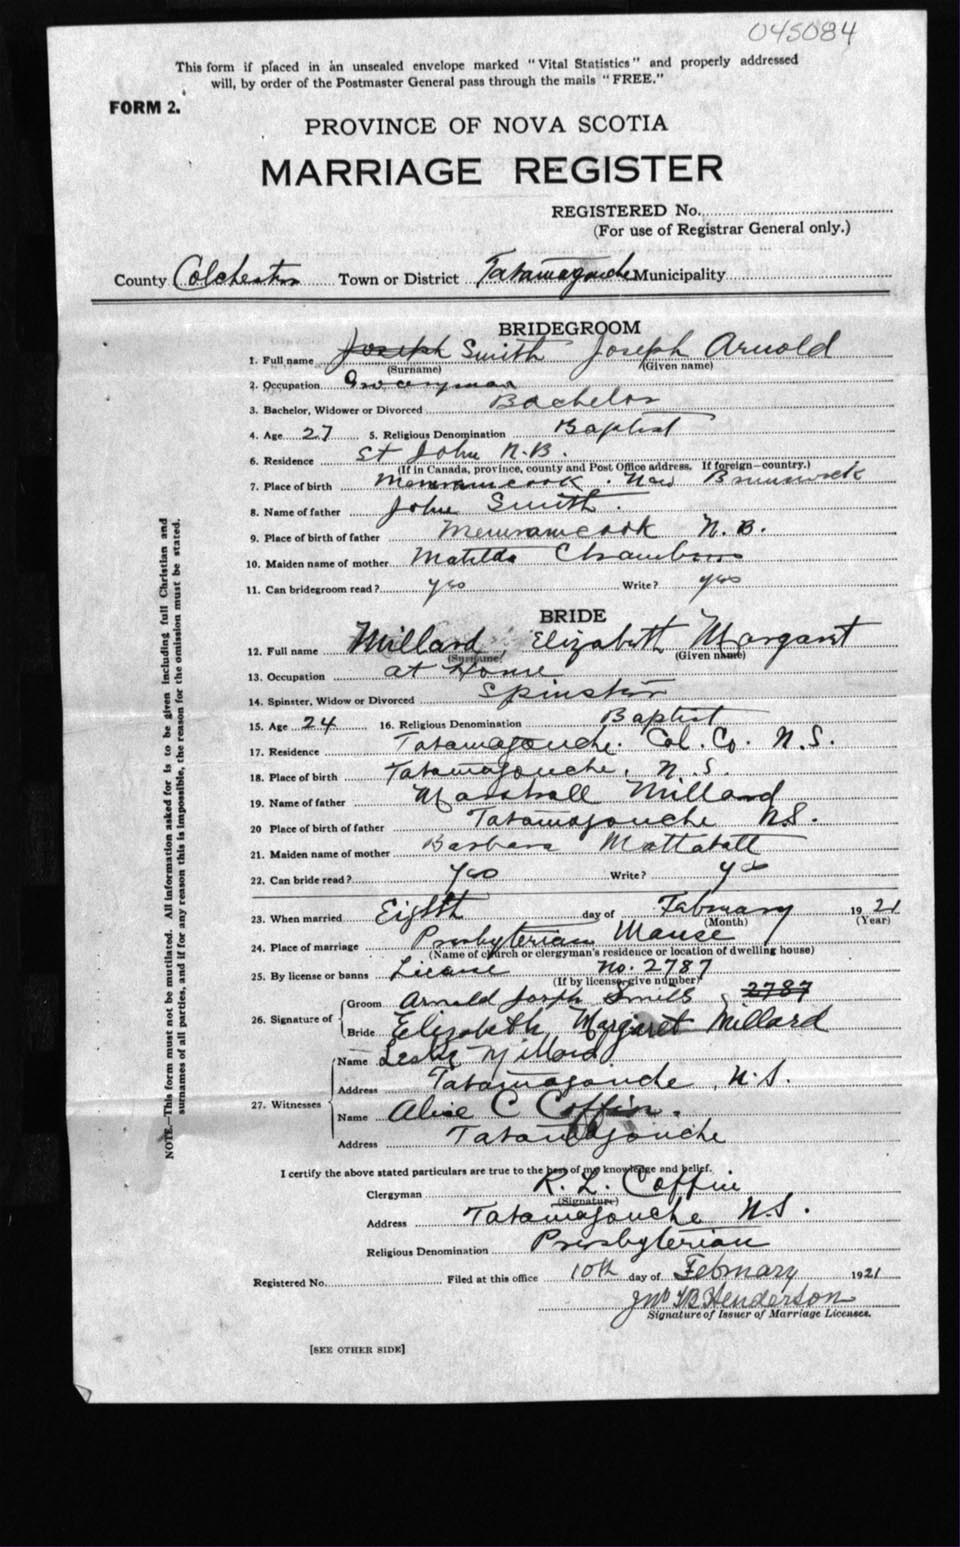 045084
This form if placed in an unsealed envelope marked "Vital Statistics" and properly addressed
will, by order of the Postmaster General pass through the mails "FREE."
FORM 2.
PROVINCE OF NOVA SCOTIA
MARRIAGE REGISTER
REGISTERED No.
(For use of Registrar General only.)
County Colchester Town or District Tatamagouche Municipality
BRIDEGROOM
1. Full name Joseph Smith Joseph Arnold
(Surname) (Given name)
2. Occupation Groceryman
3. Bachelor, Widower or Divorced Bachelor
4. Age 27 5. Religious Denomination Baptist
6. Residence St John N.B.
(If in Canada, province, county and Post Office address. If foreign—country.)
7. Place of birth Memramcook. New Brunswick
8. Name of father John Smith.
9. Place of birth of father Memramcook N.B.
10. Maiden name of mother Matilda Chambers
11. Can bridegroom read? yes Write? yes
BRIDE
12. Full name Millard, Elizabeth Margaret
(Surname) (Given name)
13. Occupation at Home
14. Spinster, Widow or Divorced Spinster
15. Age 24 16. Religious Denomination Baptist
17. Residence Tatamagouche. Col. Co. N.S.
18. Place of birth Tatamagouche, N.S.
19. Name of father Marshall Millard
20 Place of birth of father Tatamagouche N.S.
21. Maiden name of mother Barbara Mattatall
22. Can bride read? yes Write? yes
23. When married Eighth day of February 1921
(Month) (Year)
24. Place of marriage Presbyterian Manse
(Name of church or clergyman's residence or location of dwelling house)
25. By license or banns License no. 2787
(If by license, give number)
26. Signature of Groom Arnold Joseph Smith 2787
Bride Elizabeth Margaret Millard
27. Witnesses Name Leslie Millard
Address Tatamagouche, N.S.
Name Alice C Coffin.
Address Tatamagouche
I certify the above stated particulars are true to the best of my knowledge and belief.
Clergyman R. L. Coffin
(Signature)
Address Tatamagouche N.S.
Religious Denomination Presbyterian
Registered No. Filed at this office 10th day of February 1921
Jno Henderson
Signature of Issuer of Marriage Licenses.
[SEE OTHER SIDE]
NOTE.—This form must not be mutilated. All information asked for is to be given including full Christian and
surnames of all parties, and if for any reason this is impossible, the reason for the omission must be stated.